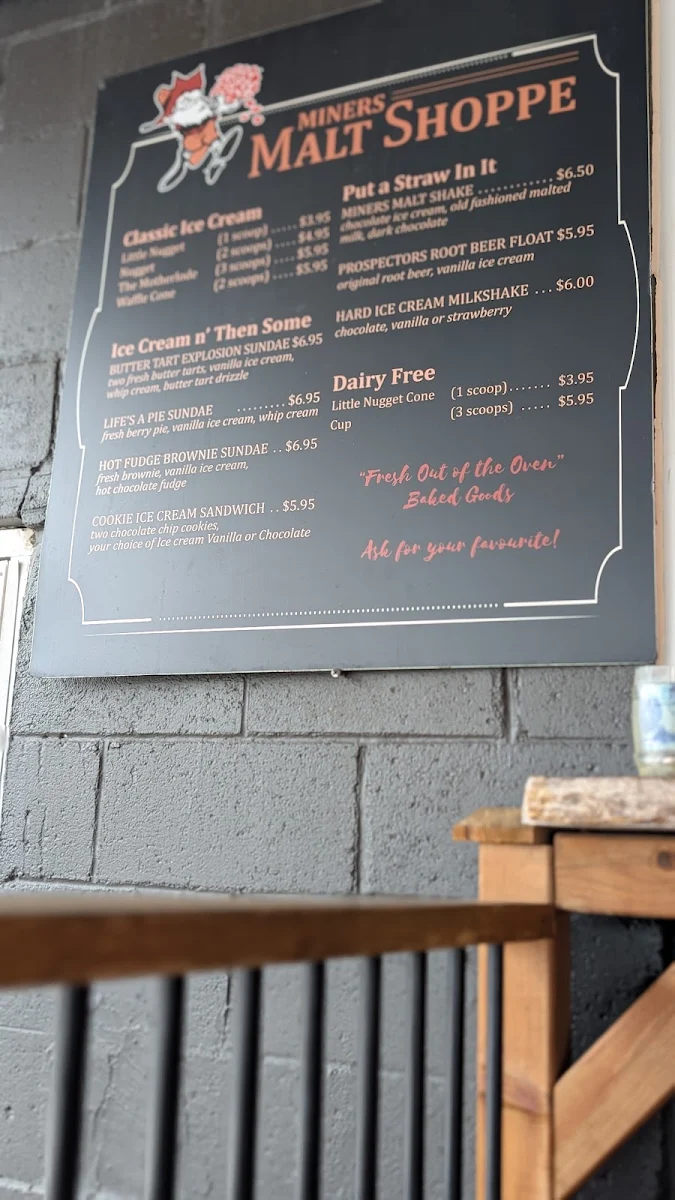 MINERS
MALT SHOPPE
Classic Ice Cream
Little Nugget (1 scoop) ..... $3.95
Nugget (2 scoops) .... $4.95
The Motherlode (3 scoops) .... $5.95
Waffle Cone (2 scoops) .... $5.95
Ice Cream n' Then Some
BUTTER TART EXPLOSION SUNDAE $6.95
two fresh butter tarts, vanilla ice cream,
whip cream, butter tart drizzle
LIFE'S A PIE SUNDAE ......... $6.95
fresh berry pie, vanilla ice cream, whip cream
HOT FUDGE BROWNIE SUNDAE .. $6.95
fresh brownie, vanilla ice cream,
hot chocolate fudge
COOKIE ICE CREAM SANDWICH .. $5.95
two chocolate chip cookies,
your choice of Ice cream Vanilla or Chocolate
Put a Straw In It
MINERS MALT SHAKE ........... $6.50
chocolate ice cream, old fashioned malted
milk, dark chocolate
PROSPECTORS ROOT BEER FLOAT $5.95
original root beer, vanilla ice cream
HARD ICE CREAM MILKSHAKE ... $6.00
chocolate, vanilla or strawberry
Dairy Free
Little Nugget Cone (1 scoop)....... $3.95
Cup (3 scoops) ..... $5.95
"Fresh Out of the Oven"
Baked Goods
Ask for your favourite!